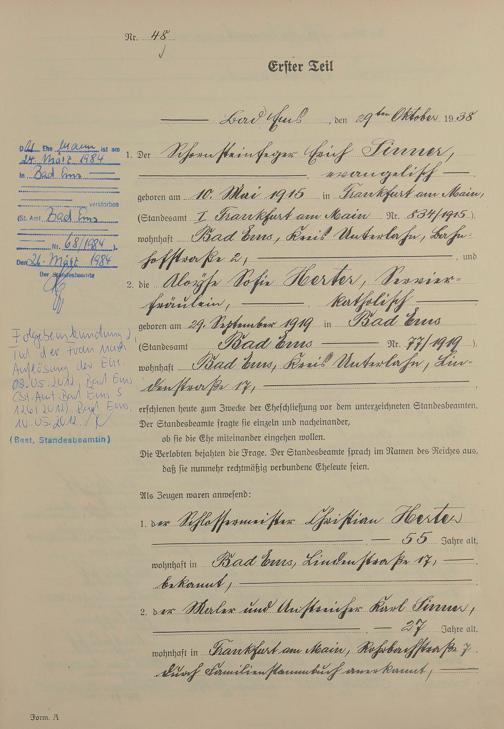 Nr. 48
Erster Teil
Bad Ems, den 29ten Oktober 1938
1. Der Schornsteinfeger Erich Sinner,
evangelisch
geboren am 10. Mai 1915 in Frankfurt am Main,
(Standesamt I Frankfurt am Main Nr. 534/1915)
wohnhaft Bad Ems, Kreis Unterlahn, Bahn-
hofstraße 2, und
2. die Aloyse Sofie Herter, Servier-
fräulein, katholisch
geboren am 29. September 1919 in Bad Ems
(Standesamt Bad Ems Nr. 77/1919)
wohnhaft Bad Ems, Kreis Unterlahn, Lin-
denstraße 17,
erschienen heute zum Zwecke der Eheschließung vor dem unterzeichneten Standesbeamten.
Der Standesbeamte fragte sie einzeln und nacheinander,
ob sie die Ehe miteinander eingehen wollen.
Die Verlobten bejahten die Frage. Der Standesbeamte sprach im Namen des Reiches aus,
daß sie nunmehr rechtmäßig verbundene Eheleute seien.
Als Zeugen waren anwesend:
1. der Schlossermeister Christian Herter
55 Jahre alt,
wohnhaft in Bad Ems, Lindenstraße 17,
bekannt,
2. der Maler und Anstreicher Karl Sinner,
27 Jahre alt,
wohnhaft in Frankfurt am Main, Rohrbachstraße 7
durch Familienstammbuch anerkannt,
Der Ehemann ist am
24. März 1984
in Bad Ems
verstorben
(St. Amt Bad Ems
Nr. 68/1984).
Den 26. März 1984
Der Standesbeamte
Folgebeurkundung,
Tod der Frau nach
Auflösung der Ehe
08.05.2012, Bad Ems
(St.Amt Bad Ems S
126/2012) Bad Ems,
10.05.2012
(Best. Standesbeamtin)
Form. A